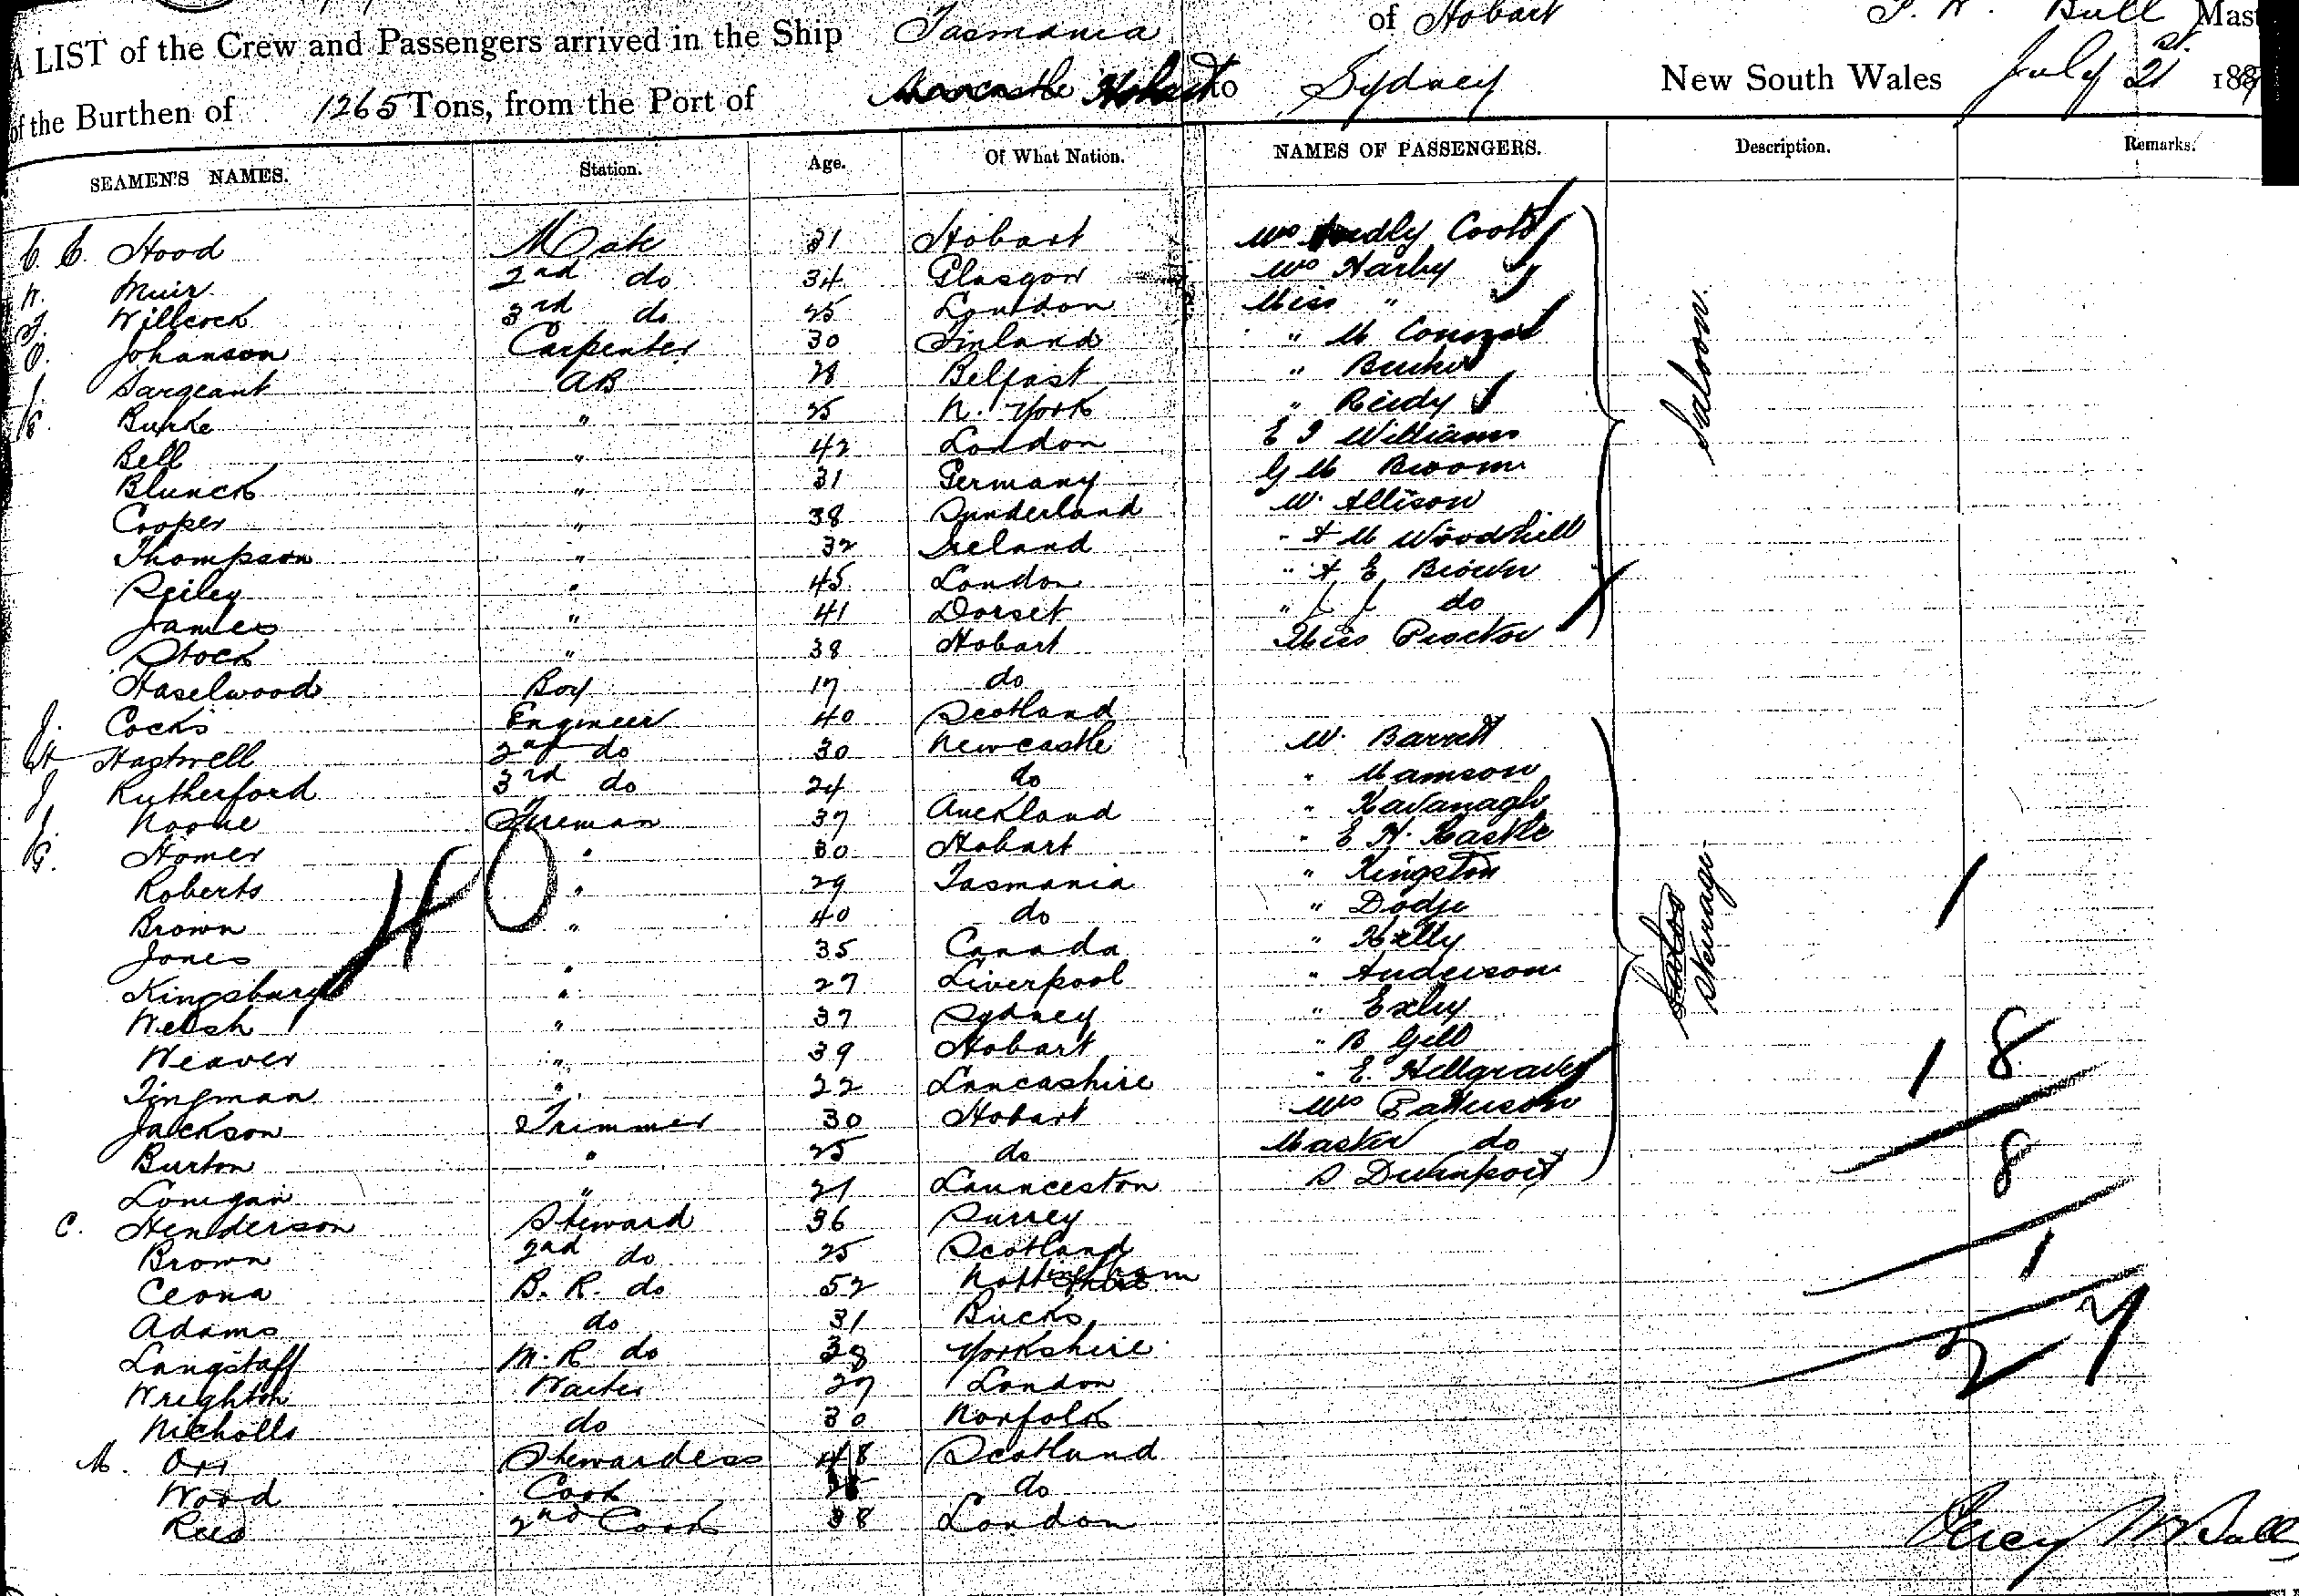 A LIST of the Crew and Passengers arrived in the Ship Tasmania of Hobart Bull Mast
of the Burthen of 1265 Tons, from the Port of Hobart to Sydney New South Wales July 21st. 188
SEAMEN'S NAMES. Station. Age. Of What Nation. NAMES OF PASSENGERS. Description. Remarks.
C. C. Hood Mate 31 Hobart
Muir 2nd do 34 Glasgow Harby
Willcock 3rd do 25 London Miss "
Johanson Carpenter 30 Finland " M
Sargeant AB 28 Belfast "
Burke " 25 N. York " Reidy
Bell " 42 London Williams Saloon.
Blunck " 31 Germany G M Broom
Cooper " 38 Sunderland W. Allison
Thompson " 32 Ireland " A M Woodhill
Reiley " 45 London " A E Brown
James " 41 Dorset " do
Stock " 38 Hobart Miss Proctor
Haselwood Boy 17 do
J. Cocks Engineer 40 Scotland
Hastwell 2nd do 30 Newcastle W. Barrett
J. Rutherford 3rd do 24 do " Mamson
Noone Fireman 37 Auckland " Kavanagh
G. Homer " 30 Hobart " E H. Kastle
Roberts " 29 Tasmania " Kingston
Brown " 40 do " Dodje
Jones " 35 Canada " Kelly Steerage
Kingsbury " 27 Liverpool " Anderson
Welsh " 37 Sydney " Exley
Weaver " 39 Hobart " B Gill
Tingman " 22 Lancashire " E. Hillgraves
Jackson Trimmer 30 Hobart Patterson
Burton " 25 do Master do
Lonigan " 21 Launceston Devenport
C. Henderson Steward 36 Surrey
Brown 2nd do 25 Scotland
Ceona B. R. do 52 Nottingham
Adams do 31 Bucks
Langstaff M. R do 38 Yorkshire
Wrighton Waiter 27 London
Nicholls do 30 Norfolk
M. Orr Stewardess 48 Scotland
Wood Cook do
Reed 2nd Cook 38 London
40
1
18
8
1
27
Percy W Bull